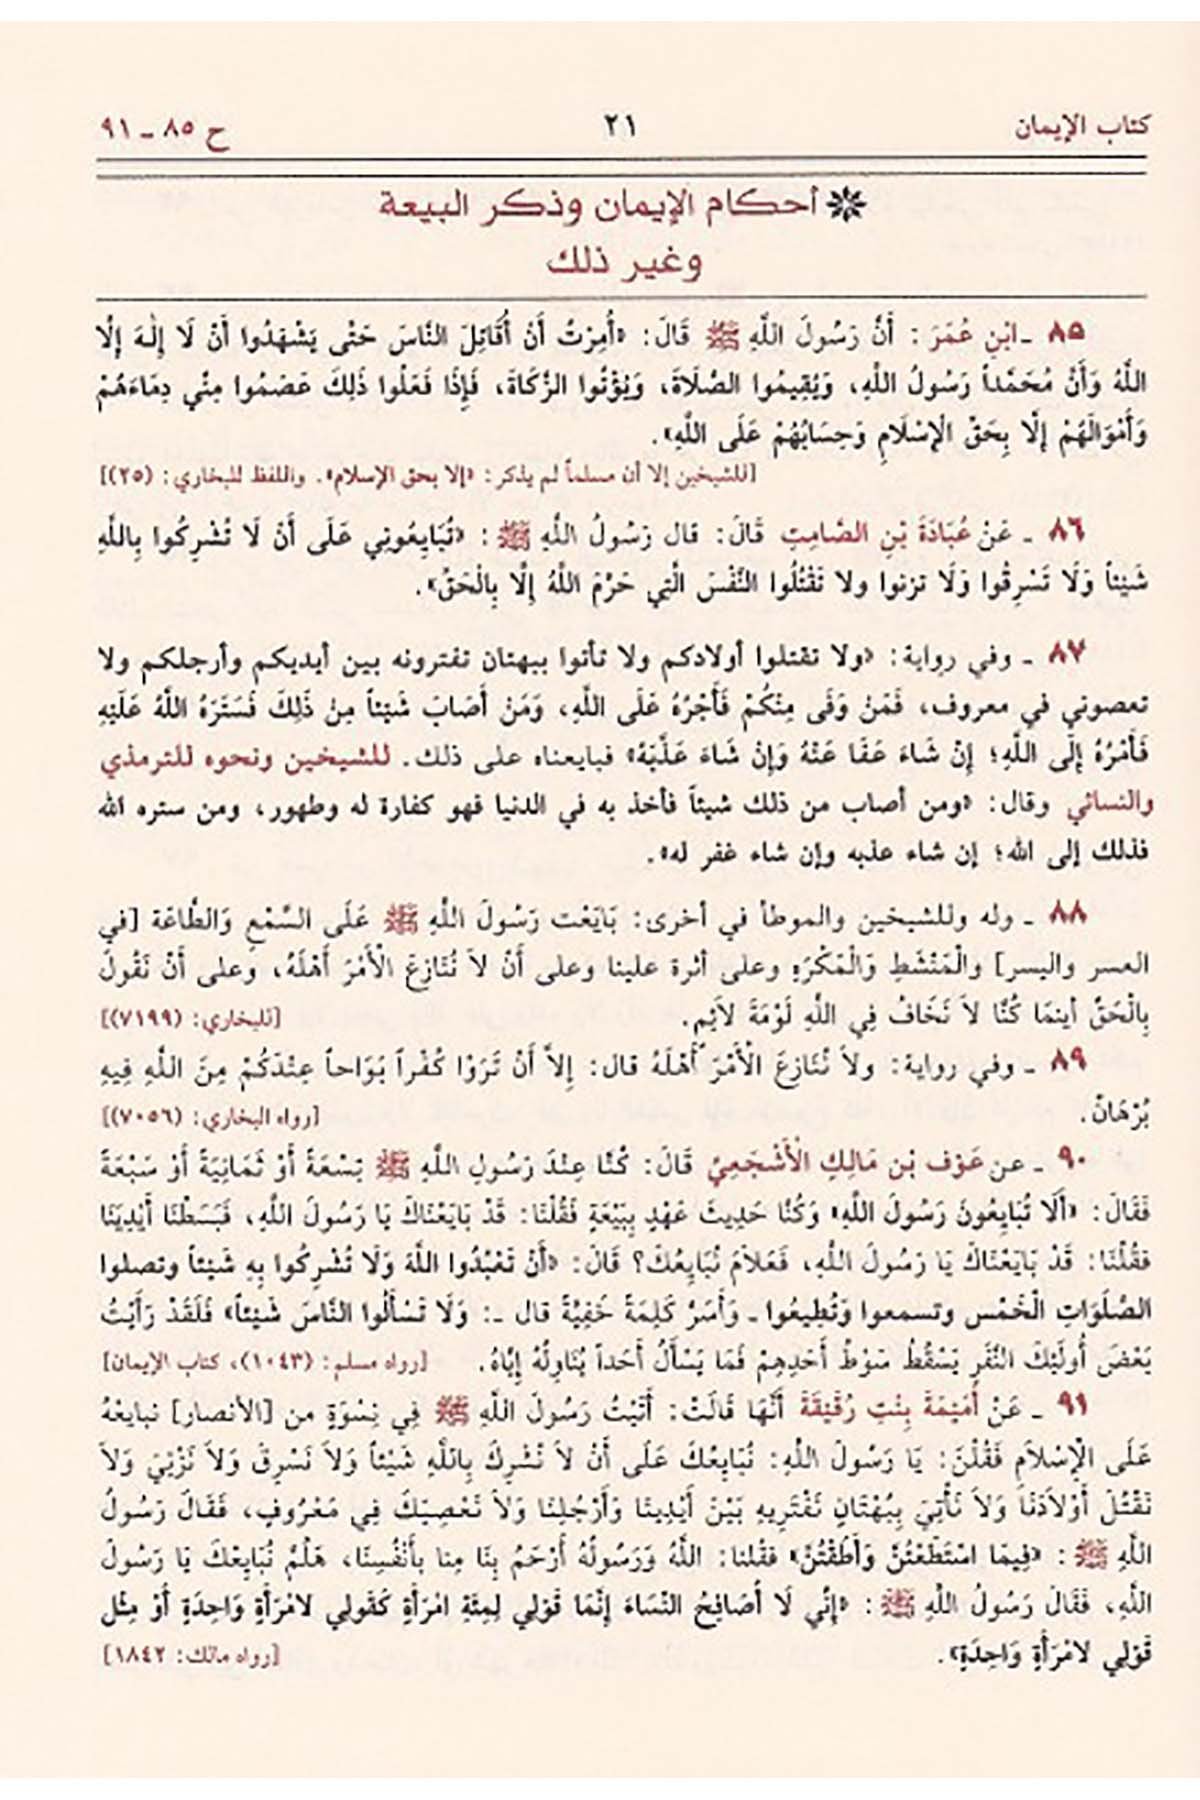 كتاب الإيمان ٢١ ح ٨٥ ـ ٩١
أحكام الإيمان وذكر البيعة
وغير ذلك
٨٥ ـ ابْنِ عُمَرَ : أَنَّ رَسُولَ اللَّهِ ﷺ قَالَ: «أُمِرْتُ أَنْ أُقَاتِلَ النَّاسَ حَتَّى يَشْهَدُوا أَنْ لَا إِلٰهَ إِلَّا
اللَّهُ وَأَنَّ مُحَمَّداً رَسُولُ اللَّهِ، وَيُقِيمُوا الصَّلَاةَ، وَيُؤْتُوا الزَّكَاةَ، فَإِذَا فَعَلُوا ذَلِكَ عَصَمُوا مِنِّي دِمَاءَهُمْ
وَأَمْوَالَهُمْ إِلَّا بِحَقِّ الْإِسْلَامِ وَحِسَابُهُمْ عَلَى اللَّهِ».
[للشيخين إلا أن مسلماً لم يذكر: «إلا بحق الإسلام». واللفظ للبخاري: (٢٥)]
٨٦ ـ عَنْ عُبَادَةَ بْنِ الصَّامِتِ قَالَ: قال رَسُولُ اللَّهِ ﷺ : «تُبَايِعُونِي عَلَى أَنْ لَا تُشْرِكُوا بِاللَّهِ
شَيْئاً وَلَا تَسْرِقُوا وَلَا تزنوا ولا تَقْتُلُوا النَّفْسَ الَّتِي حَرَّمَ اللَّهُ إِلَّا بِالْحَقِّ».
٨٧ ـ وفي رواية: «ولا تقتلوا أولادكم ولا تأتوا ببهتان تفترونه بين أيديكم وأرجلكم ولا
تعصوني في معروف، فَمَنْ وَفَى مِنْكُمْ فَأَجْرُهُ عَلَى اللَّهِ، وَمَنْ أَصَابَ شَيْئاً مِنْ ذَلِكَ فَسَتَرَهُ اللَّهُ عَلَيْهِ
فَأَمْرُهُ إِلَى اللَّهِ؛ إِنْ شَاءَ عَفَا عَنْهُ وَإِنْ شَاءَ عَذَّبَهُ» فبايعناه على ذلك. للشيخين ونحوه للترمذي
والنسائي وقال: «ومن أصاب من ذلك شيئاً فأخذ به في الدنيا فهو كفارة له وطهور، ومن ستره الله
فذلك إلى الله؛ إن شاء عذبه وإن شاء غفر له».
٨٨ ـ وله وللشيخين والموطأ في أخرى: بَايَعْت رَسُولَ اللَّهِ ﷺ عَلَى السَّمْعِ وَالطَّاعَة [في
العسر واليسر] والْمَنْشَطِ وَالْمَكْرَهِ وعلى أثرة علينا وعلى أَنْ لاَ نُنَازِعَ الْأَمْرَ أَهْلَهُ، وعلى أَنْ نَقُولَ
بِالْحَقِّ أينمَا كُنَّا لاَ نَخَافُ فِي اللَّهِ لَوْمَةَ لاَئِم. [للبخاري: (٧١٩٩)]
٨٩ ـ وفي رواية: ولاَ نُنَازِعَ الْأَمْرَ أَهْلَهُ قال: إِلاَّ أَنْ تَرَوْا كُفْراً بَوَاحاً عِنْدَكُمْ مِنَ اللَّهِ فِيهِ
بُرْهَانٌ. [رواه البخاري: (٧٠٥٦)]
٩٠ ـ عن عَوْف بْنِ مَالِكِ الْأَشْجَعِيِّ قَالَ: كُنَّا عِنْدَ رَسُولِ اللَّهِ ﷺ تِسْعَةً أَوْ ثَمَانِيَةً أَوْ سَبْعَةً
فَقَالَ: «أَلَا تُبَايِعُونَ رَسُولَ اللَّهِ» وَكُنَّا حَدِيثَ عَهْدٍ بِبَيْعَةٍ فَقُلْنَا: قَدْ بَايَعْنَاكَ يَا رَسُولَ اللَّهِ، فَبَسَطْنَا أَيْدِيَنَا
فقُلْنَا: قَدْ بَايَعْنَاكَ يَا رَسُولَ اللَّهِ، فَعَلاَمَ نُبَايِعُكَ؟ قَالَ: «أَنْ تَعْبُدُوا اللَّهَ وَلَا تُشْرِكُوا بِهِ شَيْئاً وتصلوا
الصَّلَوَاتِ الْخَمْس وتسمعوا وَتُطِيعُوا ـ وَأَسَرَّ كَلِمَةً خَفِيَّةً قال ـ: وَلَا تَسْأَلُوا النَّاسَ شَيْئاً» فَلَقَدْ رَأَيْتُ
بَعْضَ أُولَئِكَ النَّفَرِ يَسْقُطُ سَوْطُ أَحَدِهِمْ فَمَا يَسْأَلُ أَحَداً يُنَاوِلُهُ إِيَّاهُ. [رواه مسلم: (١٠٤٣)، كتاب الإيمان]
٩١ ـ عَنْ أُمَيْمَةَ بِنْتِ رُقَيْقَةَ أَنَّهَا قَالَتْ: أَتَيْتُ رَسُولَ اللَّهِ ﷺ فِي نِسْوَةٍ من [الأنصار] نبايعْهُ
عَلَى الْإِسْلاَمِ فَقُلْنَ: يَا رَسُولَ اللَّهِ: نُبَايِعُكَ عَلَى أَنْ لاَ نُشْرِكَ بِاللَّهِ شَيْئاً وَلاَ نَسْرِقَ وَلاَ نَزْنِيَ وَلاَ
نَقْتُلَ أَوْلاَدَنَا وَلاَ نَأْتِيَ بِبُهْتَانٍ نَفْتَرِيهِ بَيْنَ أَيْدِينَا وَأَرْجُلِنَا وَلاَ نَعْصِيَكَ فِي مَعْرُوفٍ، فَقَالَ رَسُولُ
اللَّهِ ﷺ : «فِيمَا اسْتَطَعْتُنَّ وَأَطَقْتُنَّ» فقُلنا: اللَّهُ وَرَسُولُهُ أَرْحَمُ بِنَا مِنا بأَنْفُسِنَا، هَلُمَّ نُبَايِعْكَ يَا رَسُولَ
اللَّهِ، فَقَالَ رَسُولُ اللَّهِ ﷺ : «إِنِّي لَا أُصَافِحُ النِّسَاءَ إِنَّمَا قَوْلِي لِمِئَةِ امْرَأَةٍ كَقَولِي لامْرَأَةٍ وَاحِدَةٍ أَوْ مِثْلِ
قَوْلِي لامْرَأَةٍ وَاحِدَةٍ». [رواه مالك: ١٨٤٢]